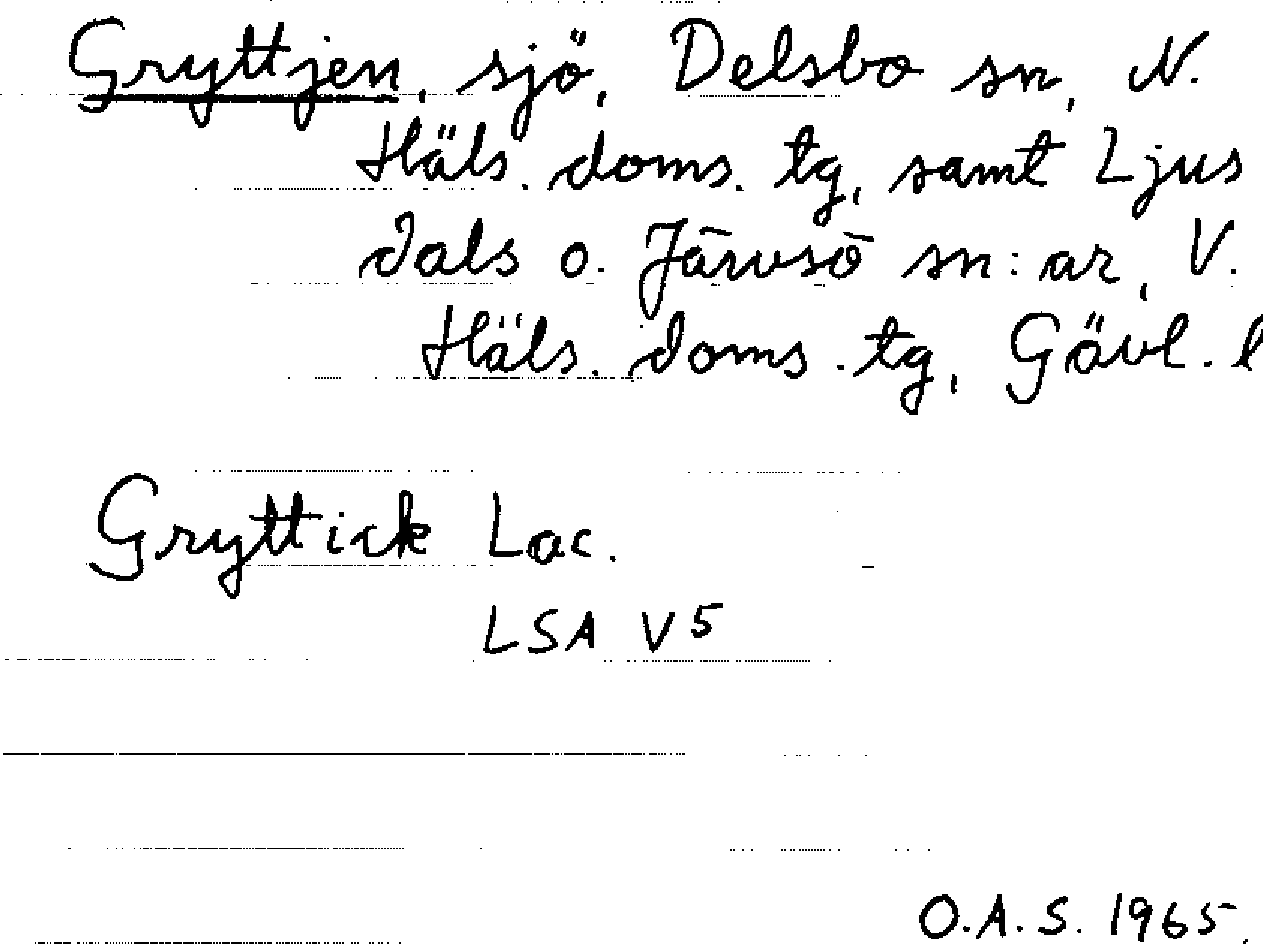 Gryttjen, sjö, Delsbo sn, N.
Häls. doms. tg, samt Ljus
dals o. Järvsö sn:ar, V.
Häls. doms. tg, Gävl. l
Gryttick Lac.
LSA V5
O.A.S. 1965.